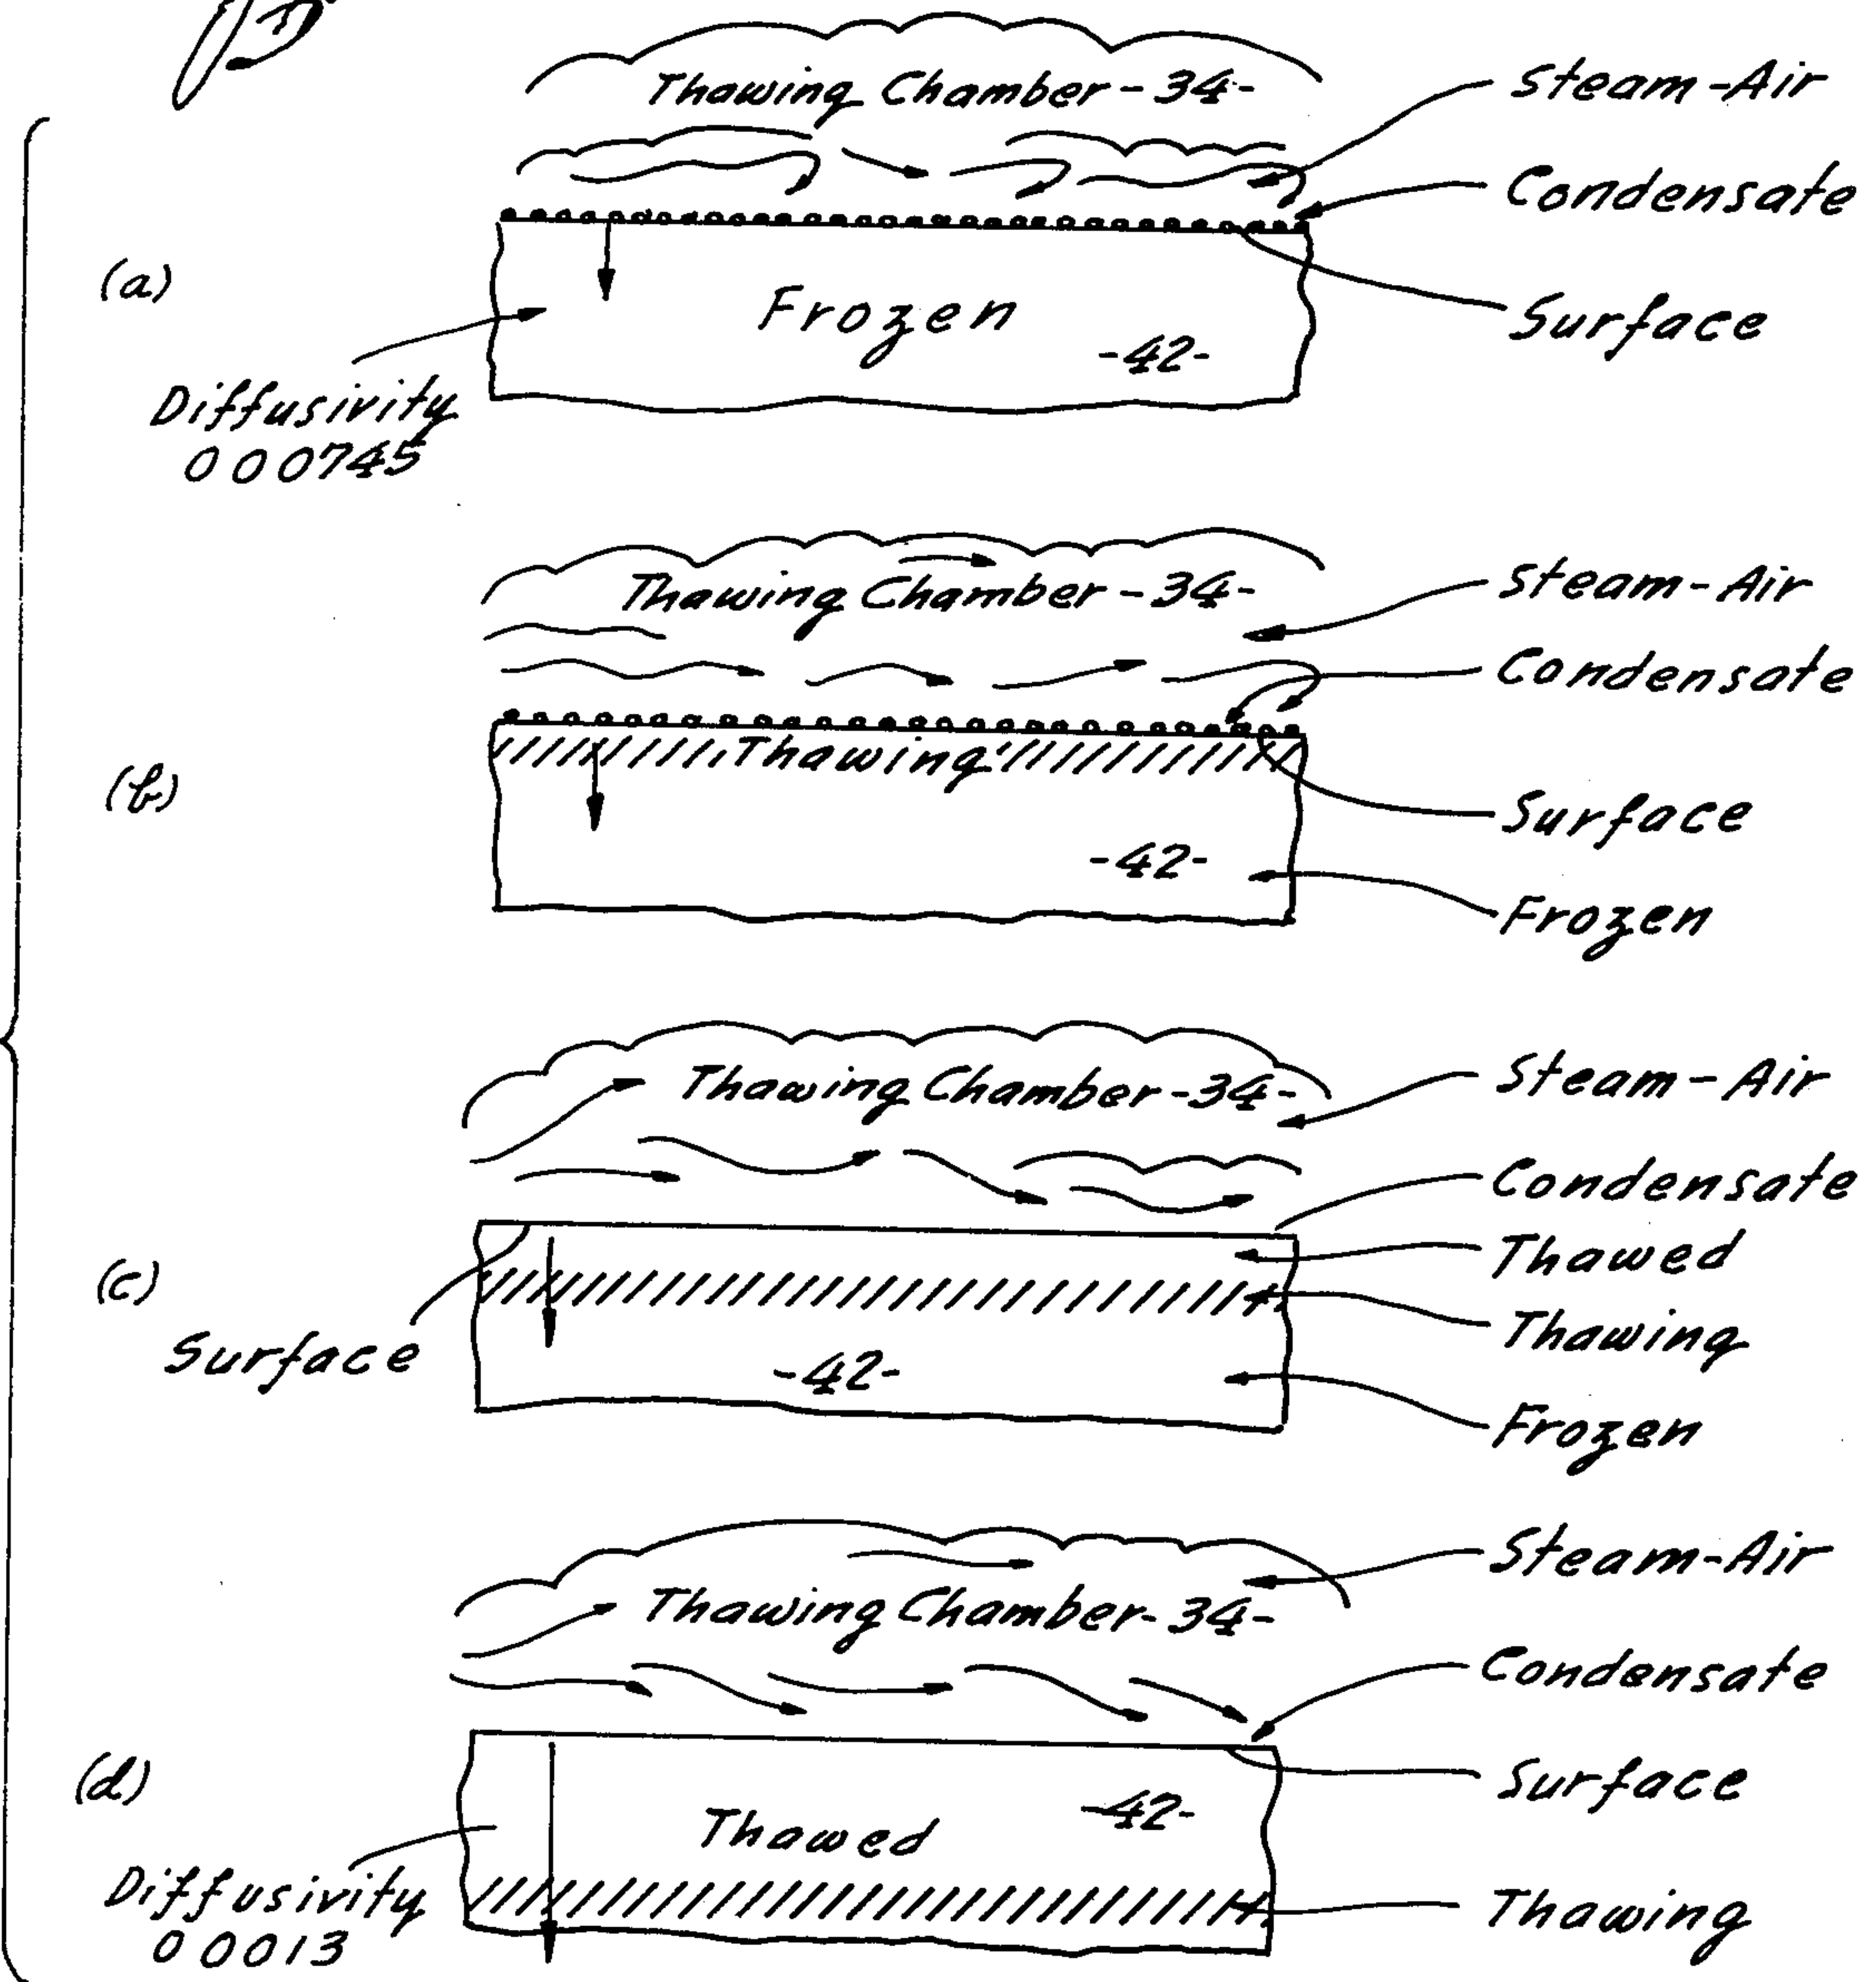 Thawing Chamber -34-
Steam-Air
Condensate
(a)
Frozen
-42-
Surface
Diffusivity
000745
Thawing Chamber -34-
Steam-Air
Condensate
(b)
Thawing
Surface
-42-
Frozen
Thawing Chamber -34-
Steam-Air
Condensate
Thawed
(c)
Thawing
Surface
-42-
Frozen
Steam-Air
Thawing Chamber -34-
Condensate
(d)
Surface
-42-
Thawed
Diffusivity
00013
Thawing